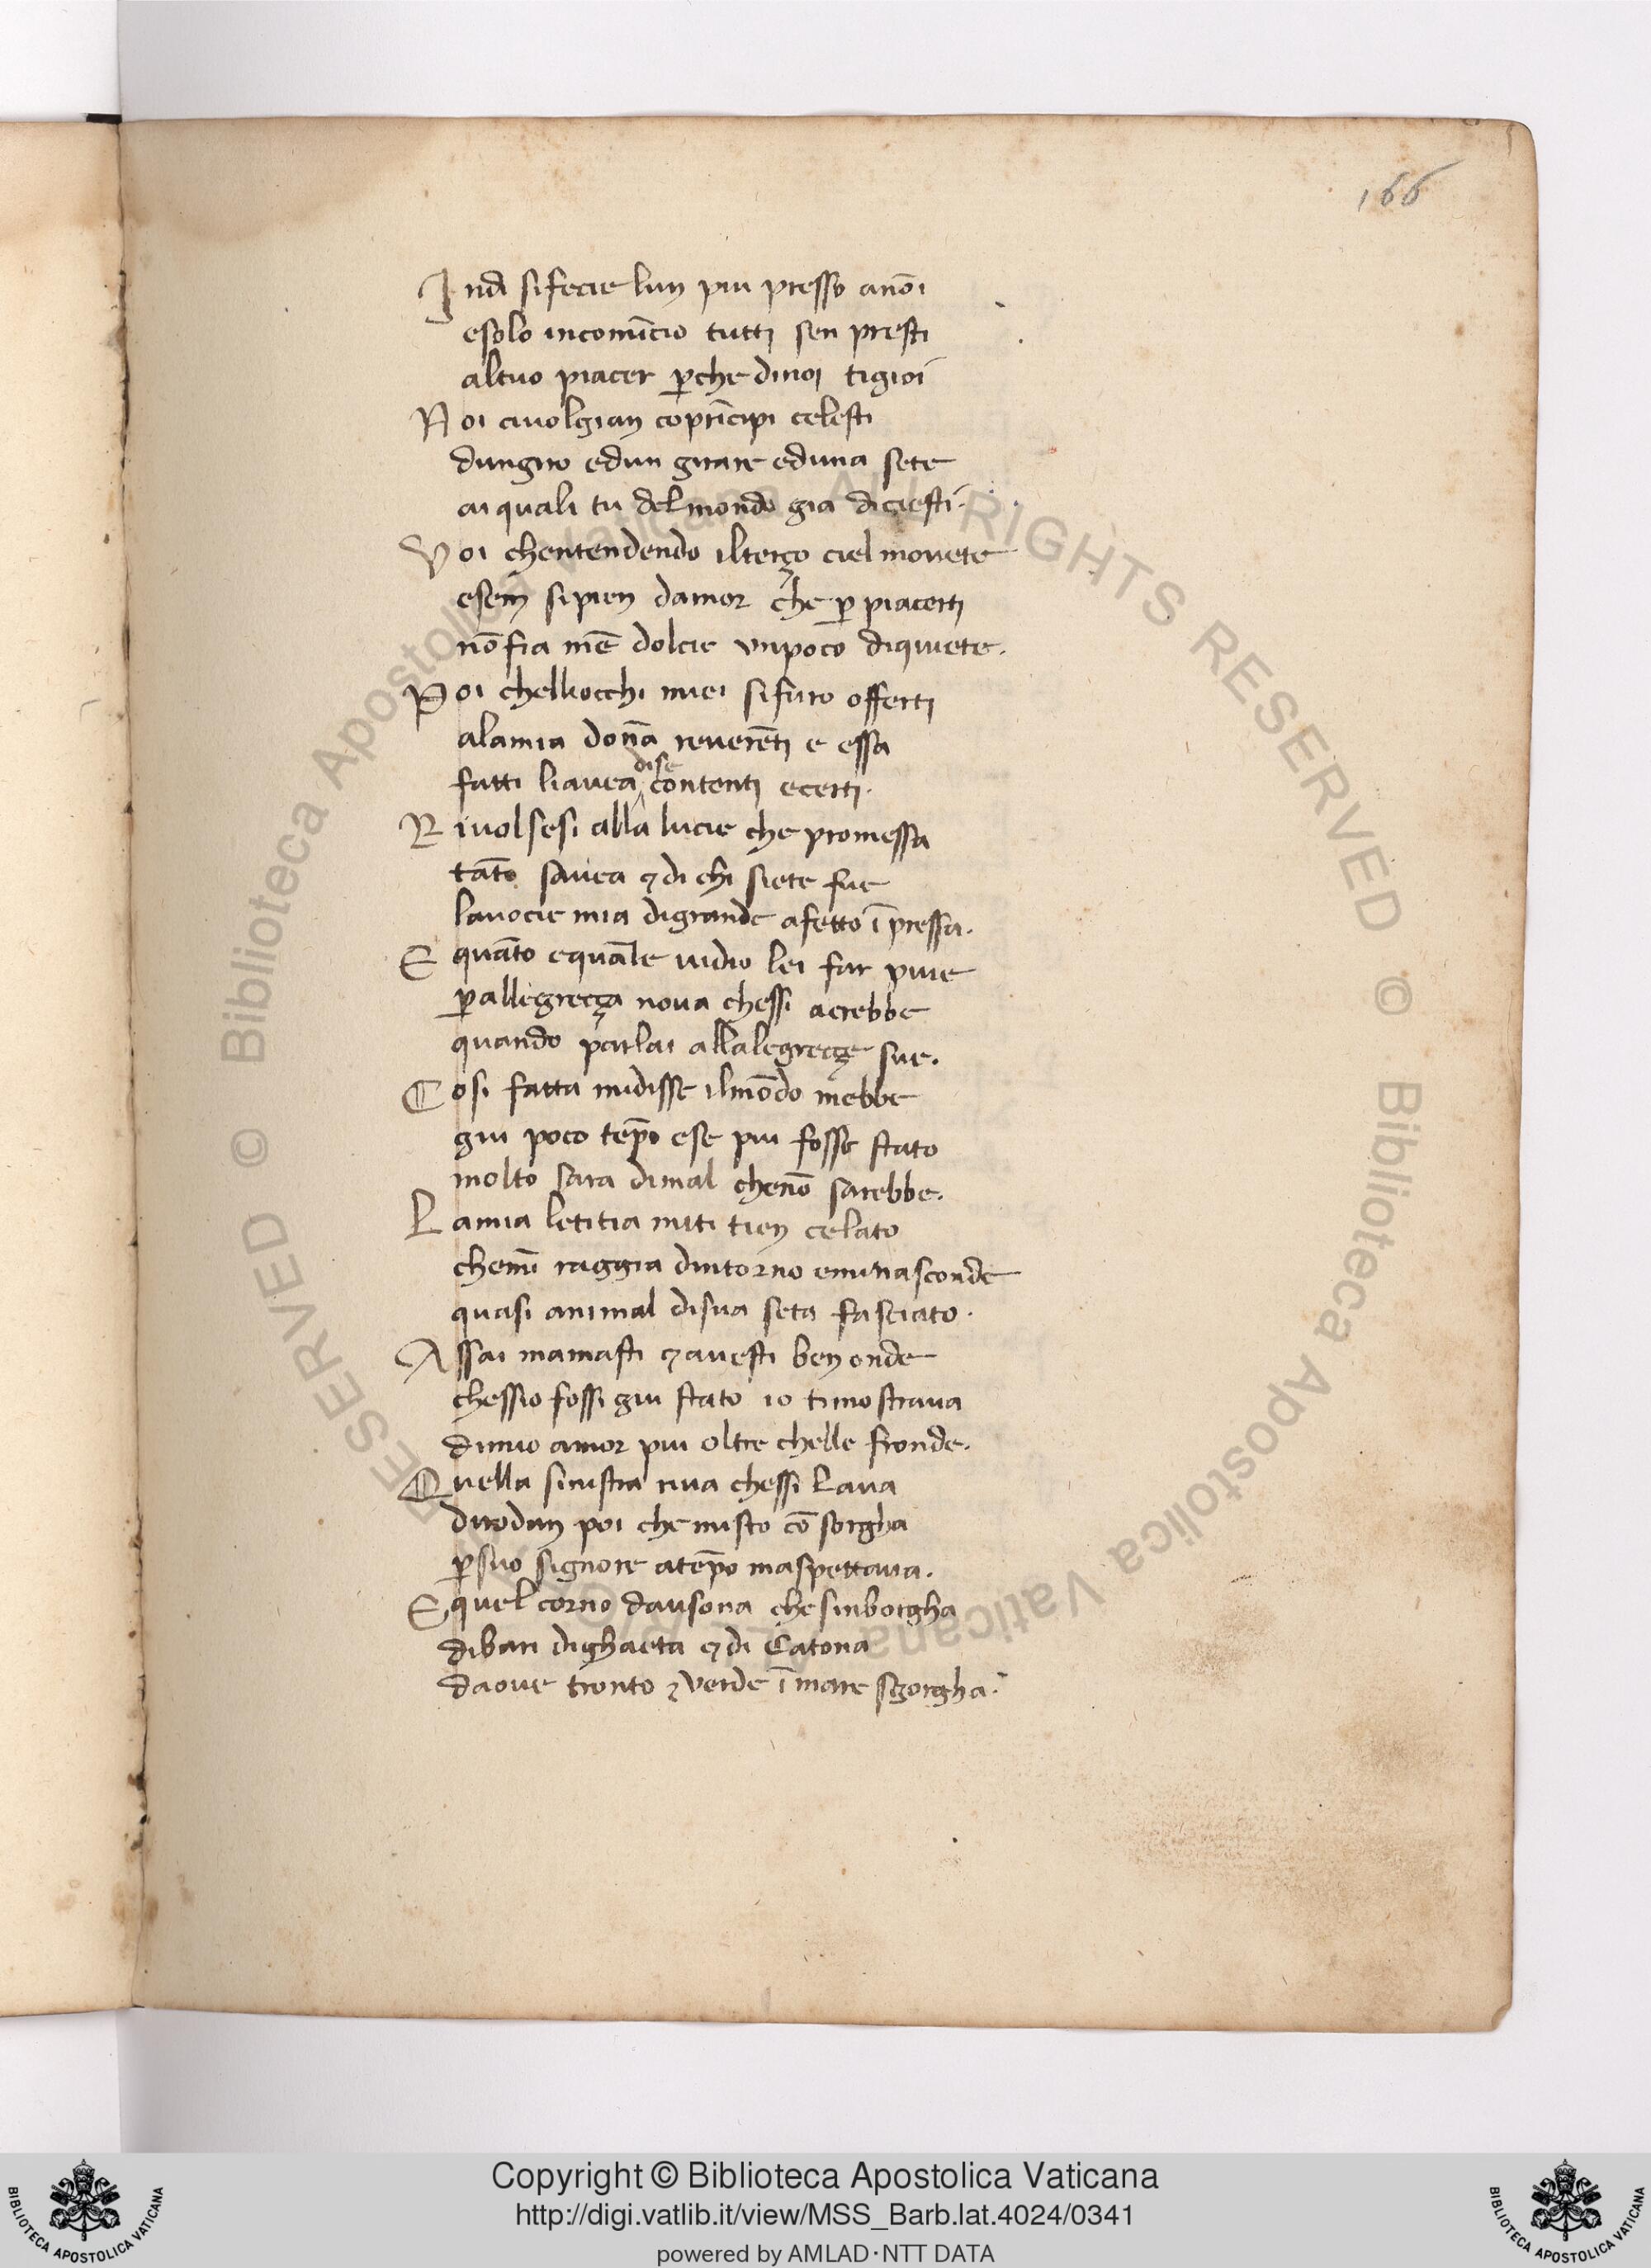 166
Indi sifecie lun piu presso anōi
esolo incomīcio tutti sen presti
altuo piacer p̱che dinoi tigioi
Noi ciuolgian coprīcipi celesti
dungiro edun girare eduna sete
ai quali tu del mondo gia diciesti.
Voi chentendendo ilterço ciel mouete
esem si pien damor che p̱ piacerti
nō fia mē dolcie vnpoco diquiete.
Poi chelliocchi miei si furo offerti
alamia donā reuerēti e essa
fatti liauea dise contenti ecerti.
Riuolsesi alla lucie che promessa
tāto sauea ⁊ di chi siete fue
lauocie mia digrande afetto īpressa.
E quāto equāle vidio lei far piue
p̱ allegreçça noua chessi acrebbe
quando parlai allalegreççe sue.
Cosi fatta midisse ilmōdo mebbe
giu poco tēpo ese piu fosse stato
molto sara dimal chenō sarebbe.
Lamia letitia miti tien celato
chemī raggia dintorno eminasconde
quasi animal disua seta fasciato.
Assai mamasti ⁊ auesti ben onde
chessio fossi giu stato io timostraua
dimio amor piu oltre chelle fronde.
Quella sinistra riua chessi laua
dirodan poi che misto cō sorgha
p̱ suo signore atēpo maspettaua.
E quel corno dausona che sinborgha
dibari dighaeta ⁊ di Catona
daoue tronto ⁊ verde ī mare sgorgha.
© Biblioteca Apostolica Vaticana ALL RIGHTS RESERVED © Biblioteca Apostolica Vaticana ALL RIGHTS RESERVED
Copyright © Biblioteca Apostolica Vaticana
http://digi.vatlib.it/view/MSS_Barb.lat.4024/0341
powered by AMLAD·NTT DATA
BIBLIOTECA APOSTOLICA VATICANA
BIBLIOTECA APOSTOLICA VATICANA